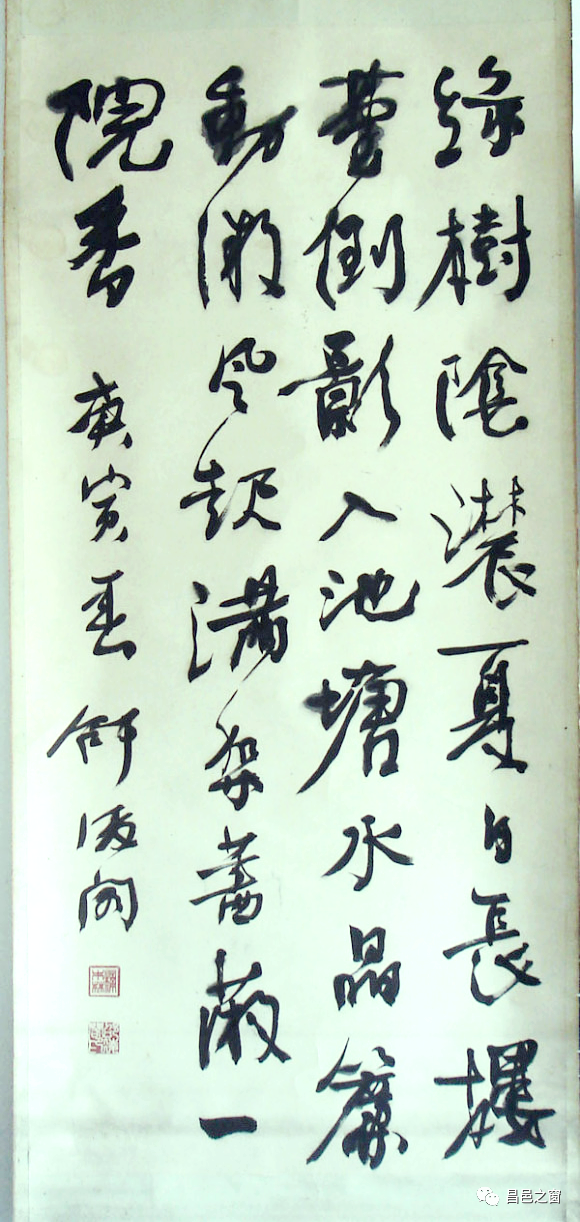 綠樹陰濃夏日長樓
臺倒影入池塘水晶簾
動微風起滿架薔薇一
院香 庚寅春
昌邑之窗